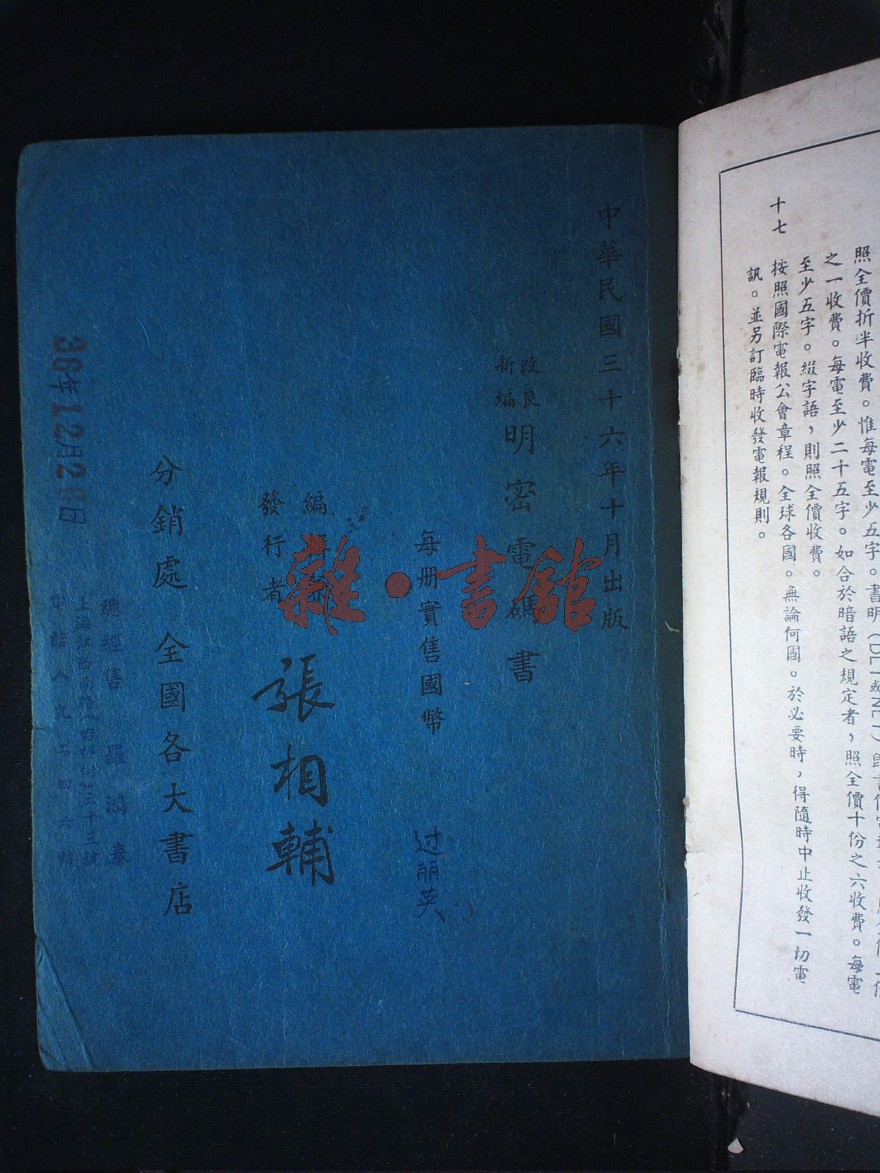 照全價折半收費。惟每電至少五字。書明
之一收費。每電至少二十五字。如合於暗語之規定者，照全價十份之六收費。每電
至少五字。綴字語，則照全價收費。
十七
按照國際電報公會章程。全球各國。無論何國。於必要時，得隨時中止收發一切電
訊。並另訂臨時收發電報規則。
中華民國三十六年十月出版
改良
新編
明密電碼書
每册實售國幣
过丽英
編
發行者
張相輔
分銷處 全國各大書店
總經售 羅鴻泰
上海江西
三十三號
電話八九二四六
36年12月2日
雜·書館